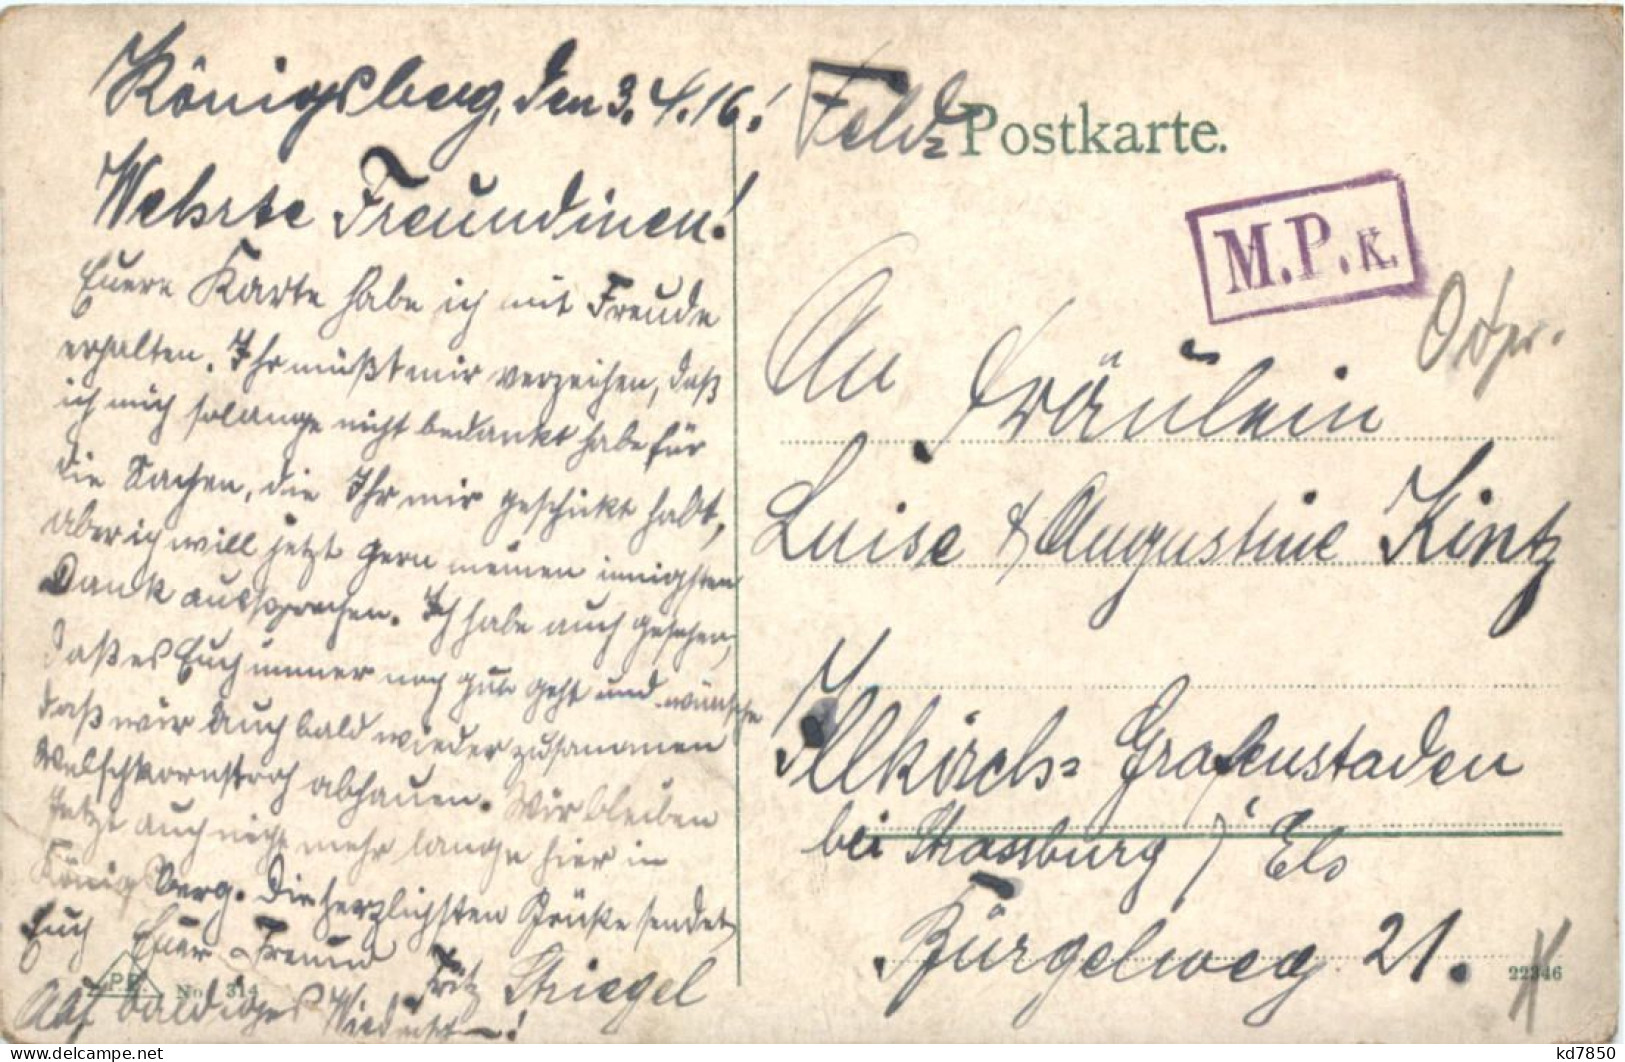 Königsberg, den 3.4.16.!
Wehrte Freundinen!
Euere Karte habe ich mit Freude
erhalten. Ihr müßt mir verzeihen, daß
ich mich solange nicht bedankt habe für
die Sachen, die Ihr mir geschickt habt,
aber ich will jetzt gern meinen innigsten
Dank aussprechen. Ich habe auch gesehen,
daß es Euch immer noch gut geht und wünsche
daß wir auch bald wieder zusammen
Welschkornstroh abhauen. Wir bleiben
jetzt auch nicht mehr lange hier in
Königsberg. Die herzlichsten Grüße sendet
Euch Euer Freund
Fritz Striegel
Auf baldiges Wiedersehn!
P.P. No. 314
Feld= Postkarte.
M.P.K.
An Fräulein
Luise & Augustine Kintz
Illkirch= Grafenstaden
bei Strassburg i/ Els
Bürgelweg 21.
22346
kd7850